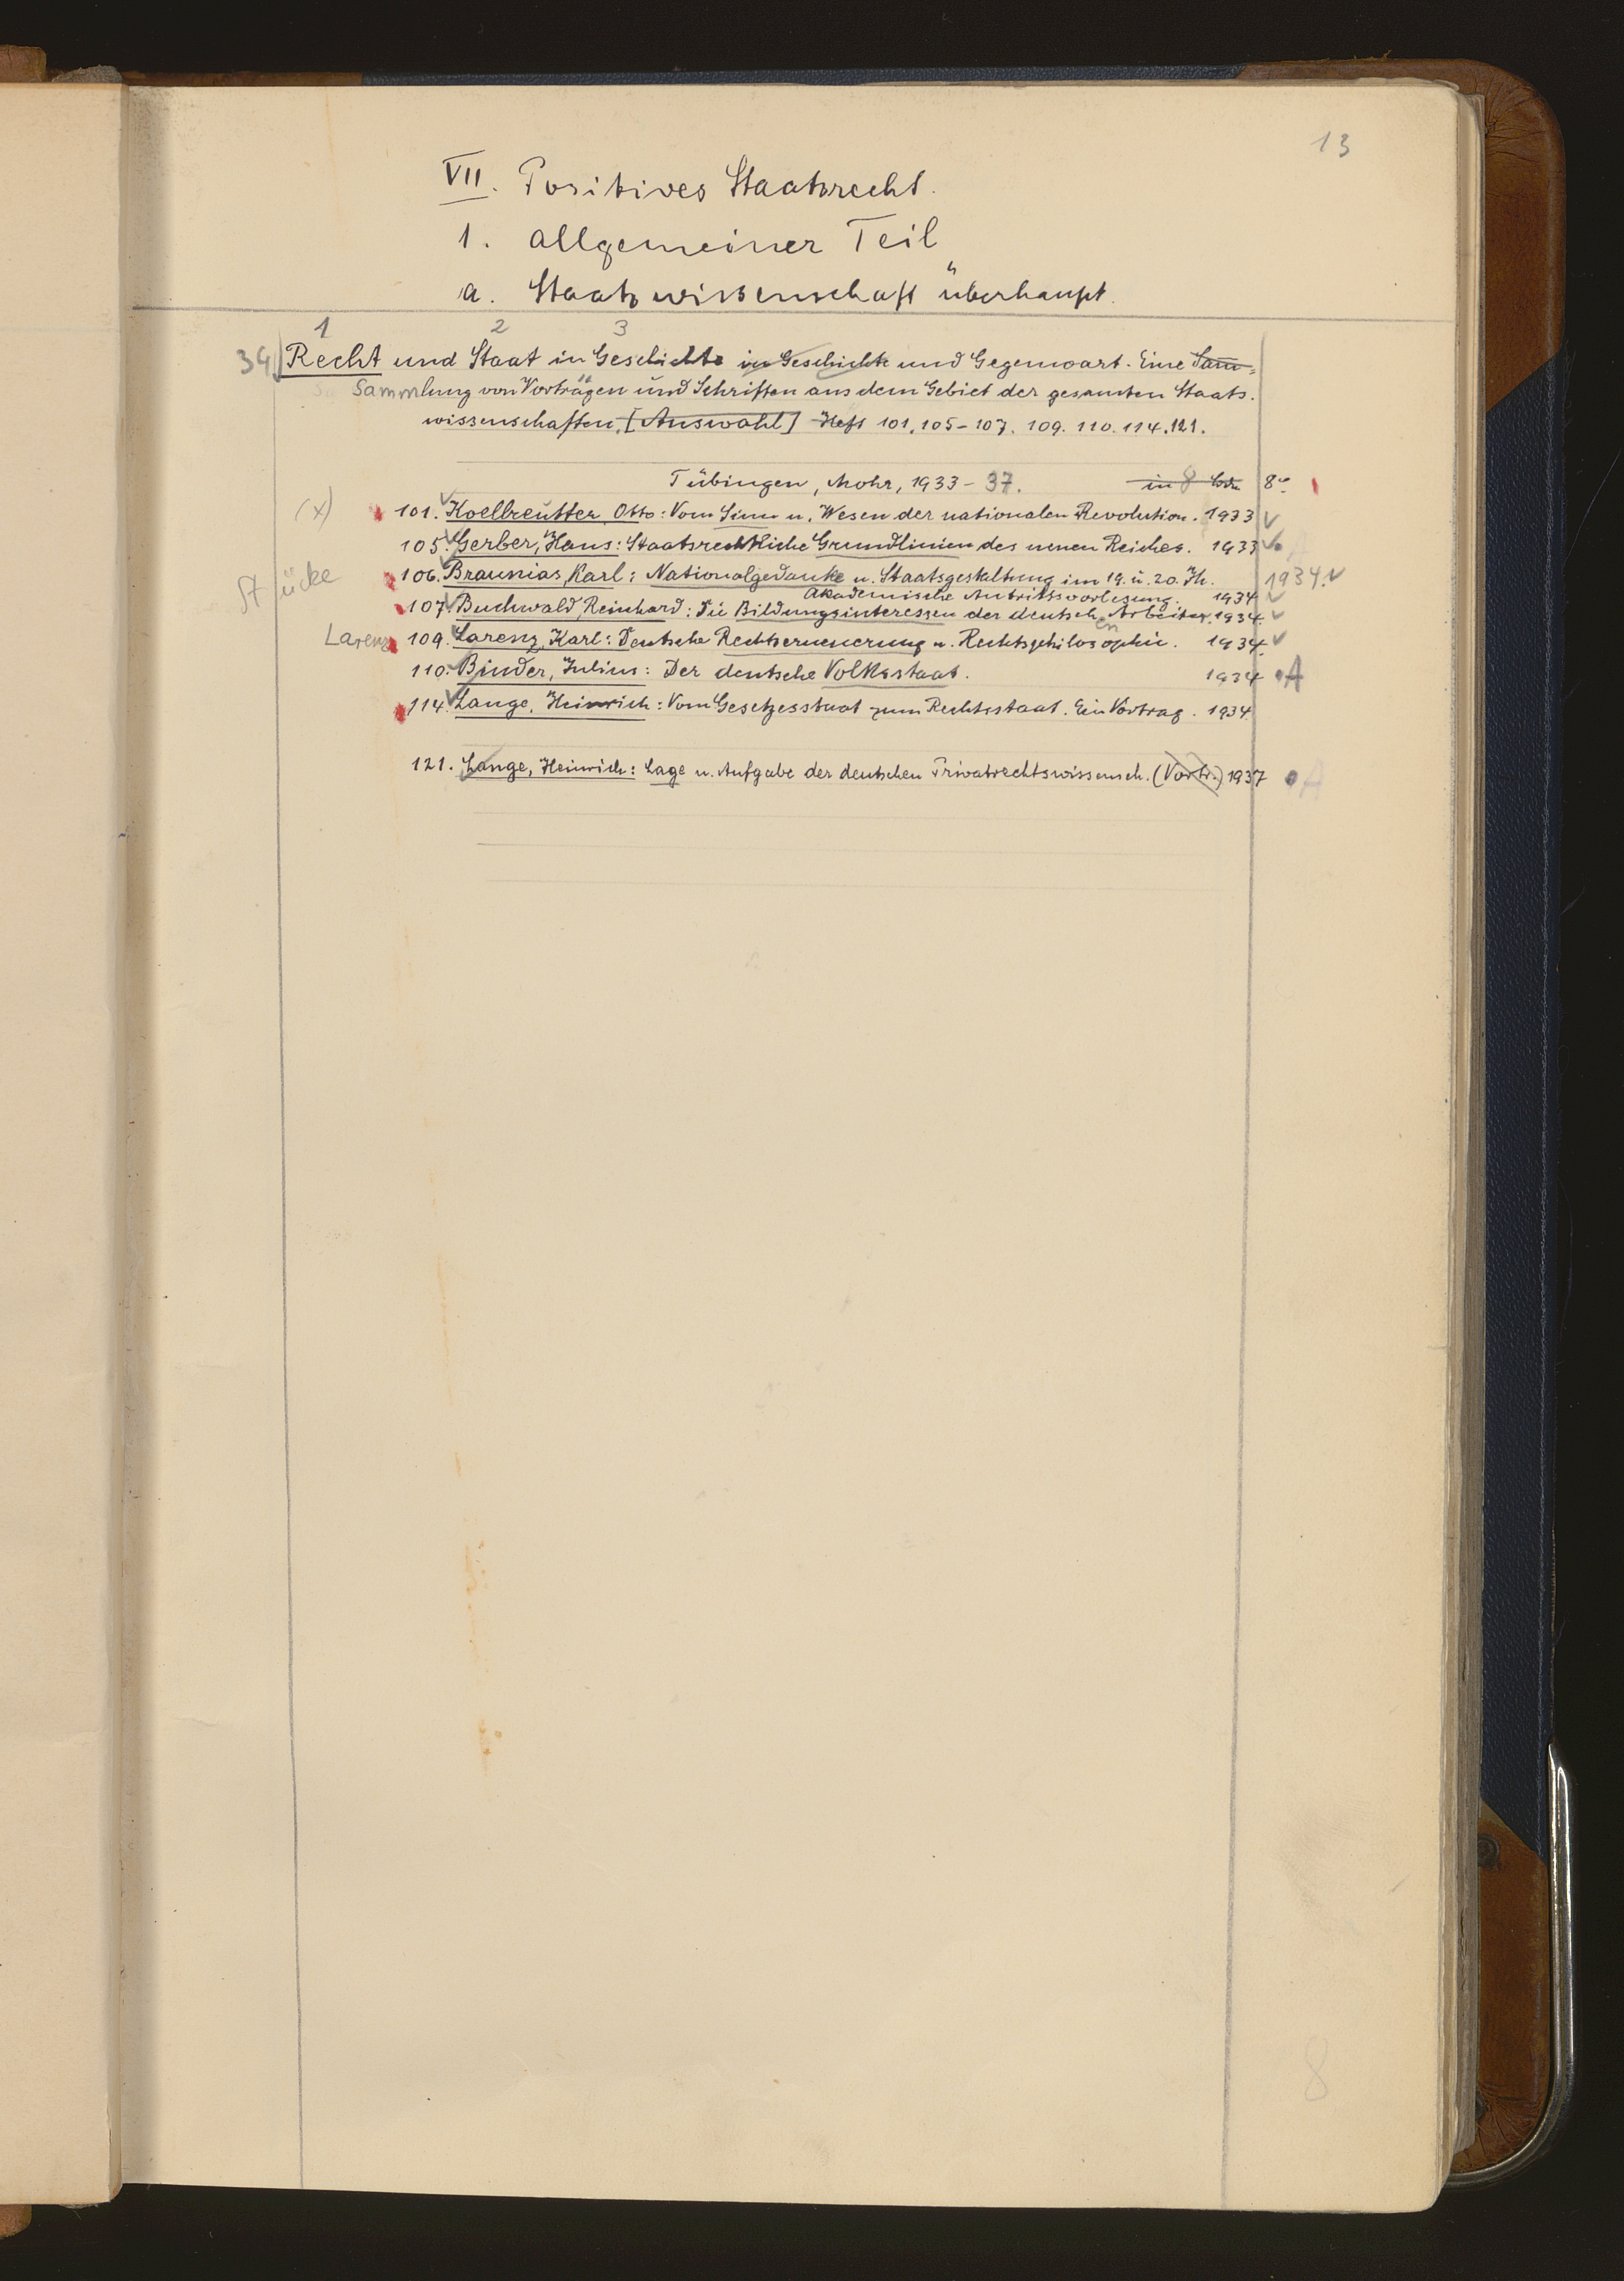 13
VII. Positives Staatsrecht.
1. allgemeiner Teil
a. Staatswissenschaft überhaupt.
1 2 3
34 Recht und Staat in Geschichte in Geschichte und Gegenwart. Eine Sam-
Sammlung von Vorträgen und Schriften aus dem Gebiet der gesamten Staats-
wissenschaften. [Auswahl] Heft 101. 105-107. 109. 110. 114. 121.
Tübingen, Mohr, 1933-37. in 8 8°
(x) 101. Koellreutter, Otto: Vom Sinn u. Wesen der nationalen Revolution. 1933
105. Gerber, Hans: Staatsrechtliche Grundlinien des neuen Reiches. 1933 A
Stücke 106. Braunias, Karl: Nationalgedanke u. Staatsgestaltung im 19. u. 20. Jh. 1934.
Akademische Antrittsvorlesung. 1934
107. Buchwald, Reinhard: Die Bildungsinteressen der deutschen Arbeiter. 1934.
Larenz 109. Larenz, Karl: Deutsche Rechtserneuerung u. Rechtsphilosophie. 1934.
110. Binder, Julius: Der deutsche Volksstaat. 1934 A
114. Lange, Heinrich: Vom Gesetzesstaat zum Rechtsstaat. Ein Vortrag. 1934
121. Lange, Heinrich: Lage u. Aufgabe der deutschen Privatrechtswissensch. (Vortr.) 1937 A
8